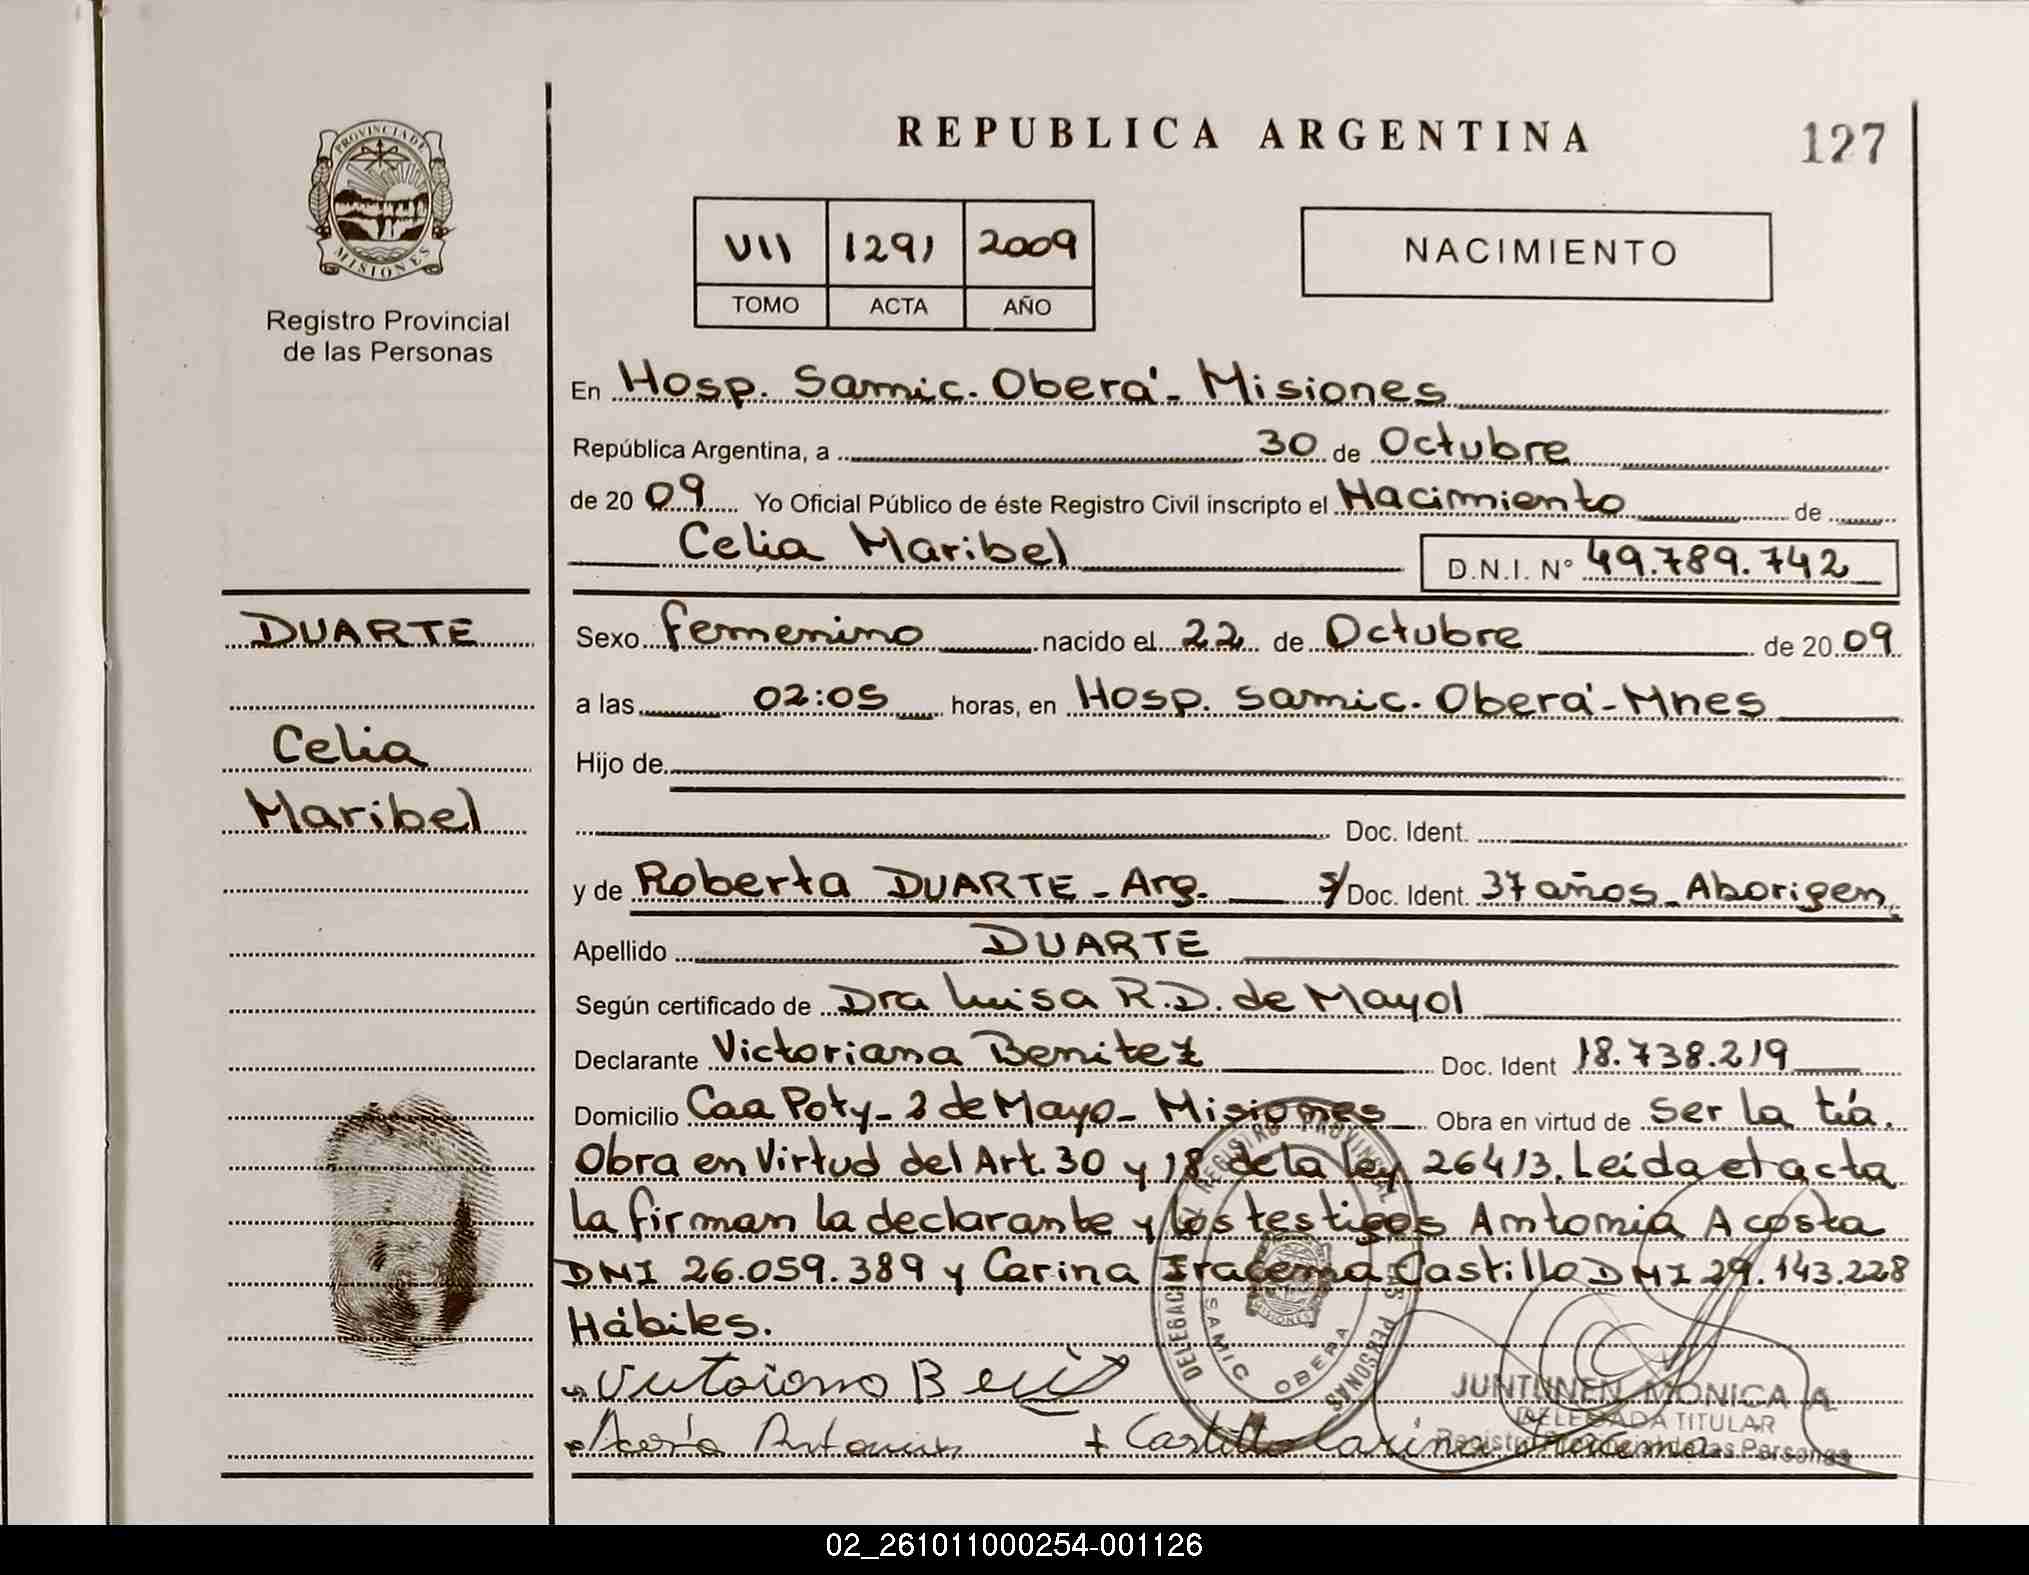 REPUBLICA ARGENTINA
127
PROVINCIA DE
MISIONES
Registro Provincial
de las Personas
VII 1291 2009
TOMO ACTA AÑO
NACIMIENTO
En Hosp. Samic. Oberá - Misiones
República Argentina, a 30 de Octubre
de 20 09 Yo Oficial Público de éste Registro Civil inscripto el Nacimiento de
Celia Maribel D.N.I. N° 49.789.742
DUARTE
Celia
Maribel
Sexo femenino nacido el 22 de Octubre de 20 09
a las 02:05 horas, en Hosp. Samic. Oberá - Mnes
Hijo de
Doc. Ident.
y de Roberta DUARTE - Arg. s/Doc. Ident. 37 años - Aborigen.
Apellido DUARTE
Según certificado de Dra Luisa R.D. de Mayol
Declarante Victoriana Benitez Doc. Ident 18.738.219
Domicilio Caa Poty - 2 de Mayo - Misiones Obra en virtud de ser la tía.
Obra en Virtud del Art. 30 y 18 de la ley 26413. Leída el acta
la firman la declarante y los testigos Antonia Acosta
DNI 26.059.389 y Carina Iracema Castillo DNI 29.143.228
Hábiles.
DELEGACION REGISTRO PROVINCIAL PERSONAS
SAMIC OBERA
JUNTUNEN MONICA A.
DELEGADA TITULAR
Registro Provincial de las Personas
Castillo Carina Iracema
02_261011000254-001126